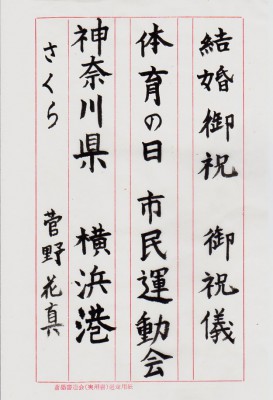 結婚御祝 御祝儀
体育の日 市民運動会
神奈川県 横浜港
さくら 菅野花真